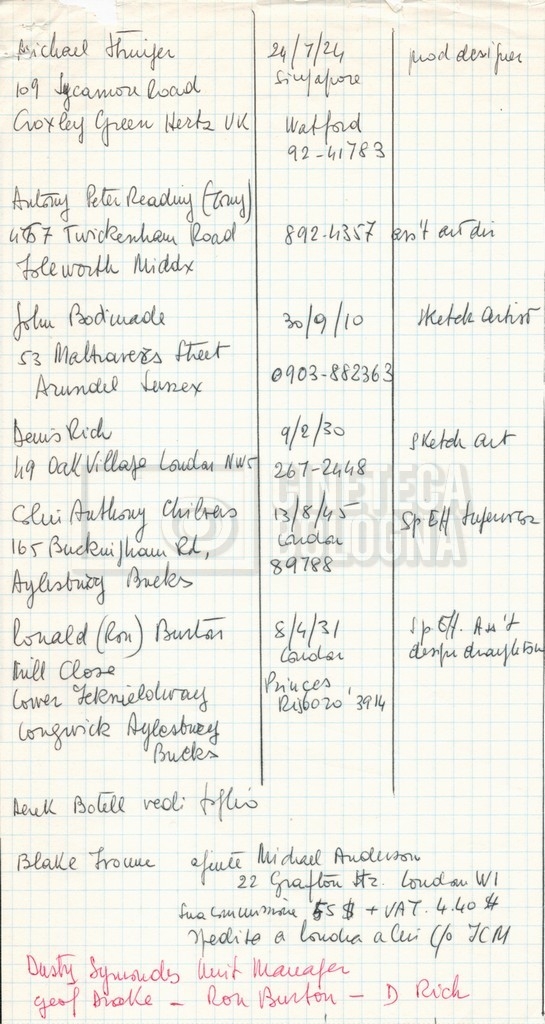 Michael 24/7/24 prod designer
109 Sycamore Road Singapore
Croxley Green Hertz UK Watford
92-41783
Antony Peter Reading (Tony)
Twickenham Road 892-4357 ass't art dir
Isleworth Middx
John Bodimade 30/9/10 sketch artist
53 Maltravers Street
Arundel Sussex 0903-882363
Denis Rich 9/2/30 Sketch art
49 Oak Village London NW5 267-2448
Colin Anthony Chilvers 13/8/45 Sp Eff Supervisor
165 Buckingham Rd, London
Aylesbury Bucks 89788
Ronald (Ron) Burton 8/4/31 Sp Eff. Ass't
Mill Close London
Lower Icknieldway Princes
Risboro' 3914
Longwick Aylesbury
Bucks
Derek Botell vedi foglio
Blake agente Michael Anderson
22 Grafton Str. London W1
Sua commissione 55 $ + VAT. 4.40 $
spedite a Londra a lui c/o ICM
Dusty Symonds Unit Manager
Geof Drake - Ron Burton - D Rich
CINETECA
BOLOGNA